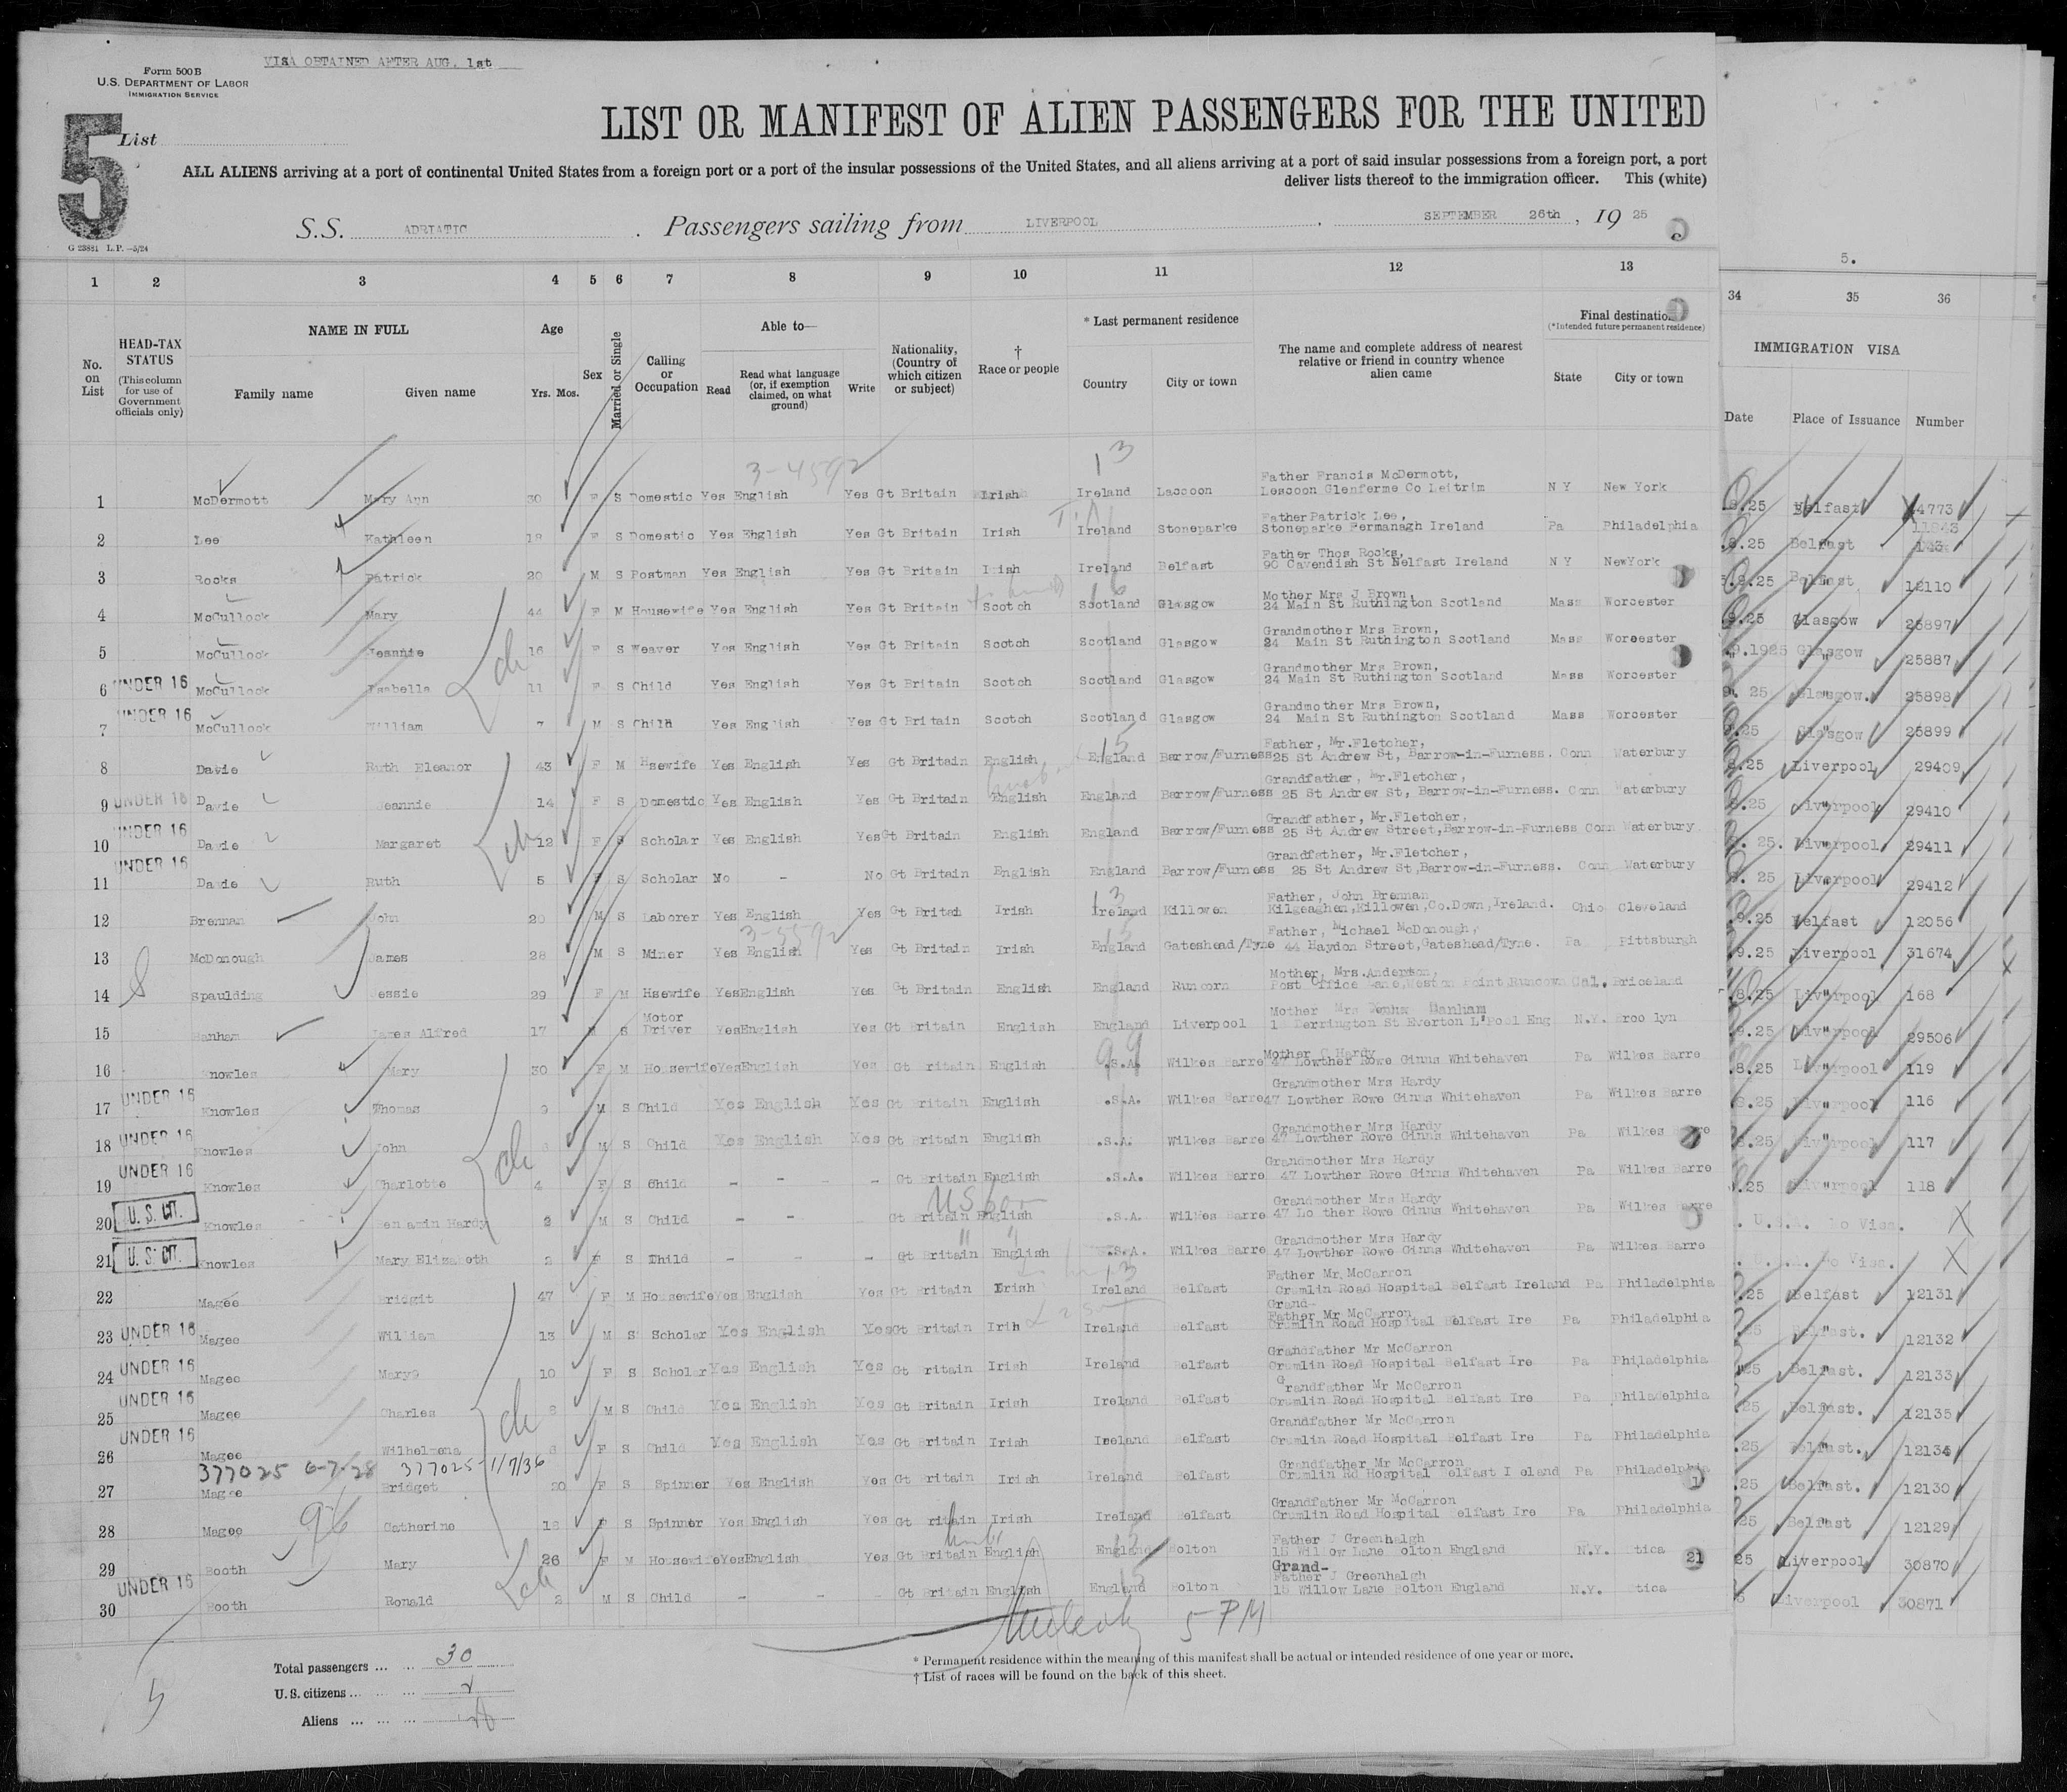 VISA OBTAINED AFTER AUG. 1st
Form 500 B
U.S. DEPARTMENT OF LABOR
IMMIGRATION SERVICE
5
List
LIST OR MANIFEST OF ALIEN PASSENGERS FOR THE UNITED
ALL ALIENS arriving at a port of continental United States from a foreign port or a port of the insular possessions of the United States, and all aliens arriving at a port of said insular possessions from a foreign port, a port
deliver lists thereof to the immigration officer. This (white)
S.S. ADRIATIC . Passengers sailing from LIVERPOOL , SEPTEMBER 26th , 19 25
G 23881 L.P.—5/24
5.
1 2 3 4 5 6 7 8 9 10 11 12 13 34 35 36
No. on List
HEAD-TAX STATUS (This column for use of Government officials only)
NAME IN FULL
Family name Given name
Age
Yrs. Mos.
Sex
Married or Single
Calling or Occupation
Able to—
Read
Read what language (or, if exemption claimed, on what ground)
Write
Nationality, (Country of which citizen or subject)
† Race or people
* Last permanent residence
Country City or town
The name and complete address of nearest relative or friend in country whence alien came
Final destination
(*Intended future permanent residence)
State City or town
IMMIGRATION VISA
Date Place of Issuance Number
3-4592
13
Father Francis McDermott,
1 McDermott Mary Ann 30 F S Domestic Yes English Yes Gt Britain Irish Ireland Lacoon Lescoon Glenferme Co Leitrim N Y New York .8.25 Belfast 4773
Father Patrick Lee,
2 Lee Kathleen 18 F S Domestic Yes English Yes Gt Britain Irish Ireland Stoneparke Stoneparke Fermanagh Ireland Pa Philadelphia .8.25 Belfast
Father Thos Rocks,
3 Rocks Patrick 20 M S Postman Yes English Yes Gt Britain Irish Ireland Belfast 90 Cavendish St Nelfast Ireland N Y NewYork .9.25 Belfast 12110
Mother Mrs J Brown,
4 McCullock Mary 44 F M Housewife Yes English Yes Gt Britain Scotch Scotland Glasgow 24 Main St Ruthington Scotland Mass Worcester .9.25 Glasgow 25897
Grandmother Mrs Brown,
5 McCullock Jeannie 16 F S Weaver Yes English Yes Gt Britain Scotch Scotland Glasgow 24 Main St Ruthington Scotland Mass Worcester .9.1925 Glasgow 25887
Grandmother Mrs Brown,
6 UNDER 16 McCullock Isabella 11 F S Child Yes English Yes Gt Britain Scotch Scotland Glasgow 24 Main St Ruthington Scotland Mass Worcester 9. 25 Glasgow. 25898
Grandmother Mrs Brown,
7 UNDER 16 McCullock William 7 M S Child Yes English Yes Gt Britain Scotch Scotland Glasgow 24 Main St Ruthington Scotland Mass Worcester .25 Glasgow 25899
Father, Mr.Fletcher,
8 Davie Ruth Eleanor 43 F M Hsewife Yes English Yes Gt Britain English England Barrow/Furness 25 St Andrew St, Barrow-in-Furness. Conn Waterbury .25 Liverpool 29409
Grandfather, Mr.Fletcher,
9 UNDER 16 Davie Jeannie 14 F S Domestic Yes English Yes Gt Britain English England Barrow/Furness 25 St Andrew St, Barrow-in-Furness. Conn Waterbury .25 Liverpool 29410
Grandfather, Mr.Fletcher,
10 UNDER 16 Davie Margaret 12 F S Scholar Yes English Yes Gt Britain English England Barrow/Furness 25 St Andrew Street,Barrow-in-Furness Conn Waterbury . 25. Liverpool 29411
Grandfather, Mr.Fletcher,
11 UNDER 16 Davie Ruth 5 F S Scholar No - No Gt Britain English England Barrow/Furness 25 St Andrew St,Barrow-in-Furness. Conn Waterbury 9. 25 Liverpool 29412
Father, John Brennan
12 Brennan John 20 M S Laborer Yes English Yes Gt Britain Irish Ireland Killowen Kilgeaghan,Killowen,Co.Down,Ireland. Ohio Cleveland .9.25 Belfast 12056
3-5592
Father, Michael McDonough,
13 McDonough James 28 M S Miner Yes English Yes Gt Britain Irish England Gateshead/Tyne 44 Haydon Street,Gateshead/Tyne. Pa Pittsburgh .9.25 Liverpool 31674
Mother, Mrs.Anderton,
14 Spaulding Jessie 29 F M Hsewife YesEnglish Yes Gt Britain English England Runcorn Post Office Lane,Weston Point,Runcorn Cal. Briceland .8.25 Liverpool 168
15 Hanham James Alfred 17 M S Motor Driver YesEnglish Yes Gt Britain English England Liverpool Derrington St Everton L'Pool Eng N.Y. Broo lyn .9.25 Liverpool 29506
Mother C Hardy
16 Knowles Mary 30 F M HousewifeYesEnglish Yes Gt Britain English .S.A. Wilkes Barre 47 Lowther Rowe Ginns Whitehaven Pa Wilkes Barre .8.25 Liverpool 119
Grandmother Mrs Hardy
17 UNDER 16 Knowles Thomas 9 M S Child Yes English Yes Gt Britain English .S.A. Wilkes Barre 47 Lowther Rowe Ginns Whitehaven Pa Wilkes Barre 8.25 Liverpool 116
Grandmother Mrs Hardy
18 UNDER 16 Knowles John M S Child Yes English Yes Gt Britain English .S.A. Wilkes Barre 47 Lowther Rowe Ginns Whitehaven Pa Wilkes Barre 8.25 Liverpool 117
Grandmother Mrs Hardy
19 UNDER 16 Knowles Charlotte 4 F S Child - - - Gt Britain English .S.A. Wilkes Barre 47 Lowther Rowe Ginns Whitehaven Pa Wilkes Barre .25 Liverpool 118
US born
Grandmother Mrs Hardy
20 U. S. CIT. Knowles Benjamin Hardy 2 M S Child - - Gt Britain English .S.A. Wilkes Barre 47 Lo ther Rowe Ginns Whitehaven Pa Wilkes Barre . U.S.A. No Visa.
Grandmother Mrs Hardy
21 U. S. CIT. Knowles Mary Elizabeth 2 F S Child - - - Gt Britain English .S.A. Wilkes Barre 47 Lowther Rowe Ginns Whitehaven Pa Wilkes Barre No Visa.
Father Mr. McCarron
22 Magee Bridgit 47 F M Housewife Yes English Yes Gt Britain Irish Ireland Belfast Crumlin Road Hospital Belfast Ireland Pa Philadelphia .25 Belfast 12131
Grand-
Father Mr McCarron
23 UNDER 16 Magee William 13 M S Scholar Yes English Yes Gt Britain Irih Ireland Belfast Crumlin Road Hospital Belfast Ire Pa Philadelphia 25 Belfast. 12132
Grandfather Mr McCarron
24 UNDER 16 Magee Mary 10 F S Scholar Yes English Yes Gt Britain Irish Ireland Belfast Crumlin Road Hospital Belfast Ire Pa Philadelphia 25 Belfast. 12133
Grandfather Mr McCarron
25 UNDER 16 Magee Charles 8 M S Child Yes English Yes Gt Britain Irish Ireland Belfast Crumlin Road Hospital Belfast Ire Pa Philadelphia 25 Belfast. 12135
Grandfather Mr McCarron
26 UNDER 16 Magee Wilhelmena 6 F S Child Yes English Yes Gt Britain Irish Ireland Belfast Crumlin Road Hospital Belfast Ire Pa Philadelphia .25 Belfast. 12134
377025 6-7-28 377025-1/7/36
Grandfather Mr McCarron
27 Magee Bridget 20 F S Spinner Yes English Yes Gt Britain Irish Ireland Belfast Crumlin Rd Hospital Belfast I eland Pa Philadelphia .25 Belfast. 12130
Grandfather Mr McCarron
28 Magee Catherine 18 F S Spinner Yes English Yes Gt Britain Irish Ireland Belfast Crumlin Road Hospital Belfast Ire Pa Philadelphia 25 Belfast 12129
Father J Greenhalgh
29 Booth Mary 26 F M HousewifeYesEnglish Yes Gt Britain English England Bolton 15 Willow Lane olton England N.Y. tica 25 Liverpool 30870
Grand-
Father J Greenhalgh
30 UNDER 16 Booth Ronald 2 M S Child - - Gt Britain English England Bolton 15 Willow Lane Bolton England N.Y. tica Liverpool 30871
21
5 PM
Total passengers ... ... 30
U.S. citizens ... ... ... 2
Aliens ... ... ...
* Permanent residence within the meaning of this manifest shall be actual or intended residence of one year or more.
† List of races will be found on the back of this sheet.